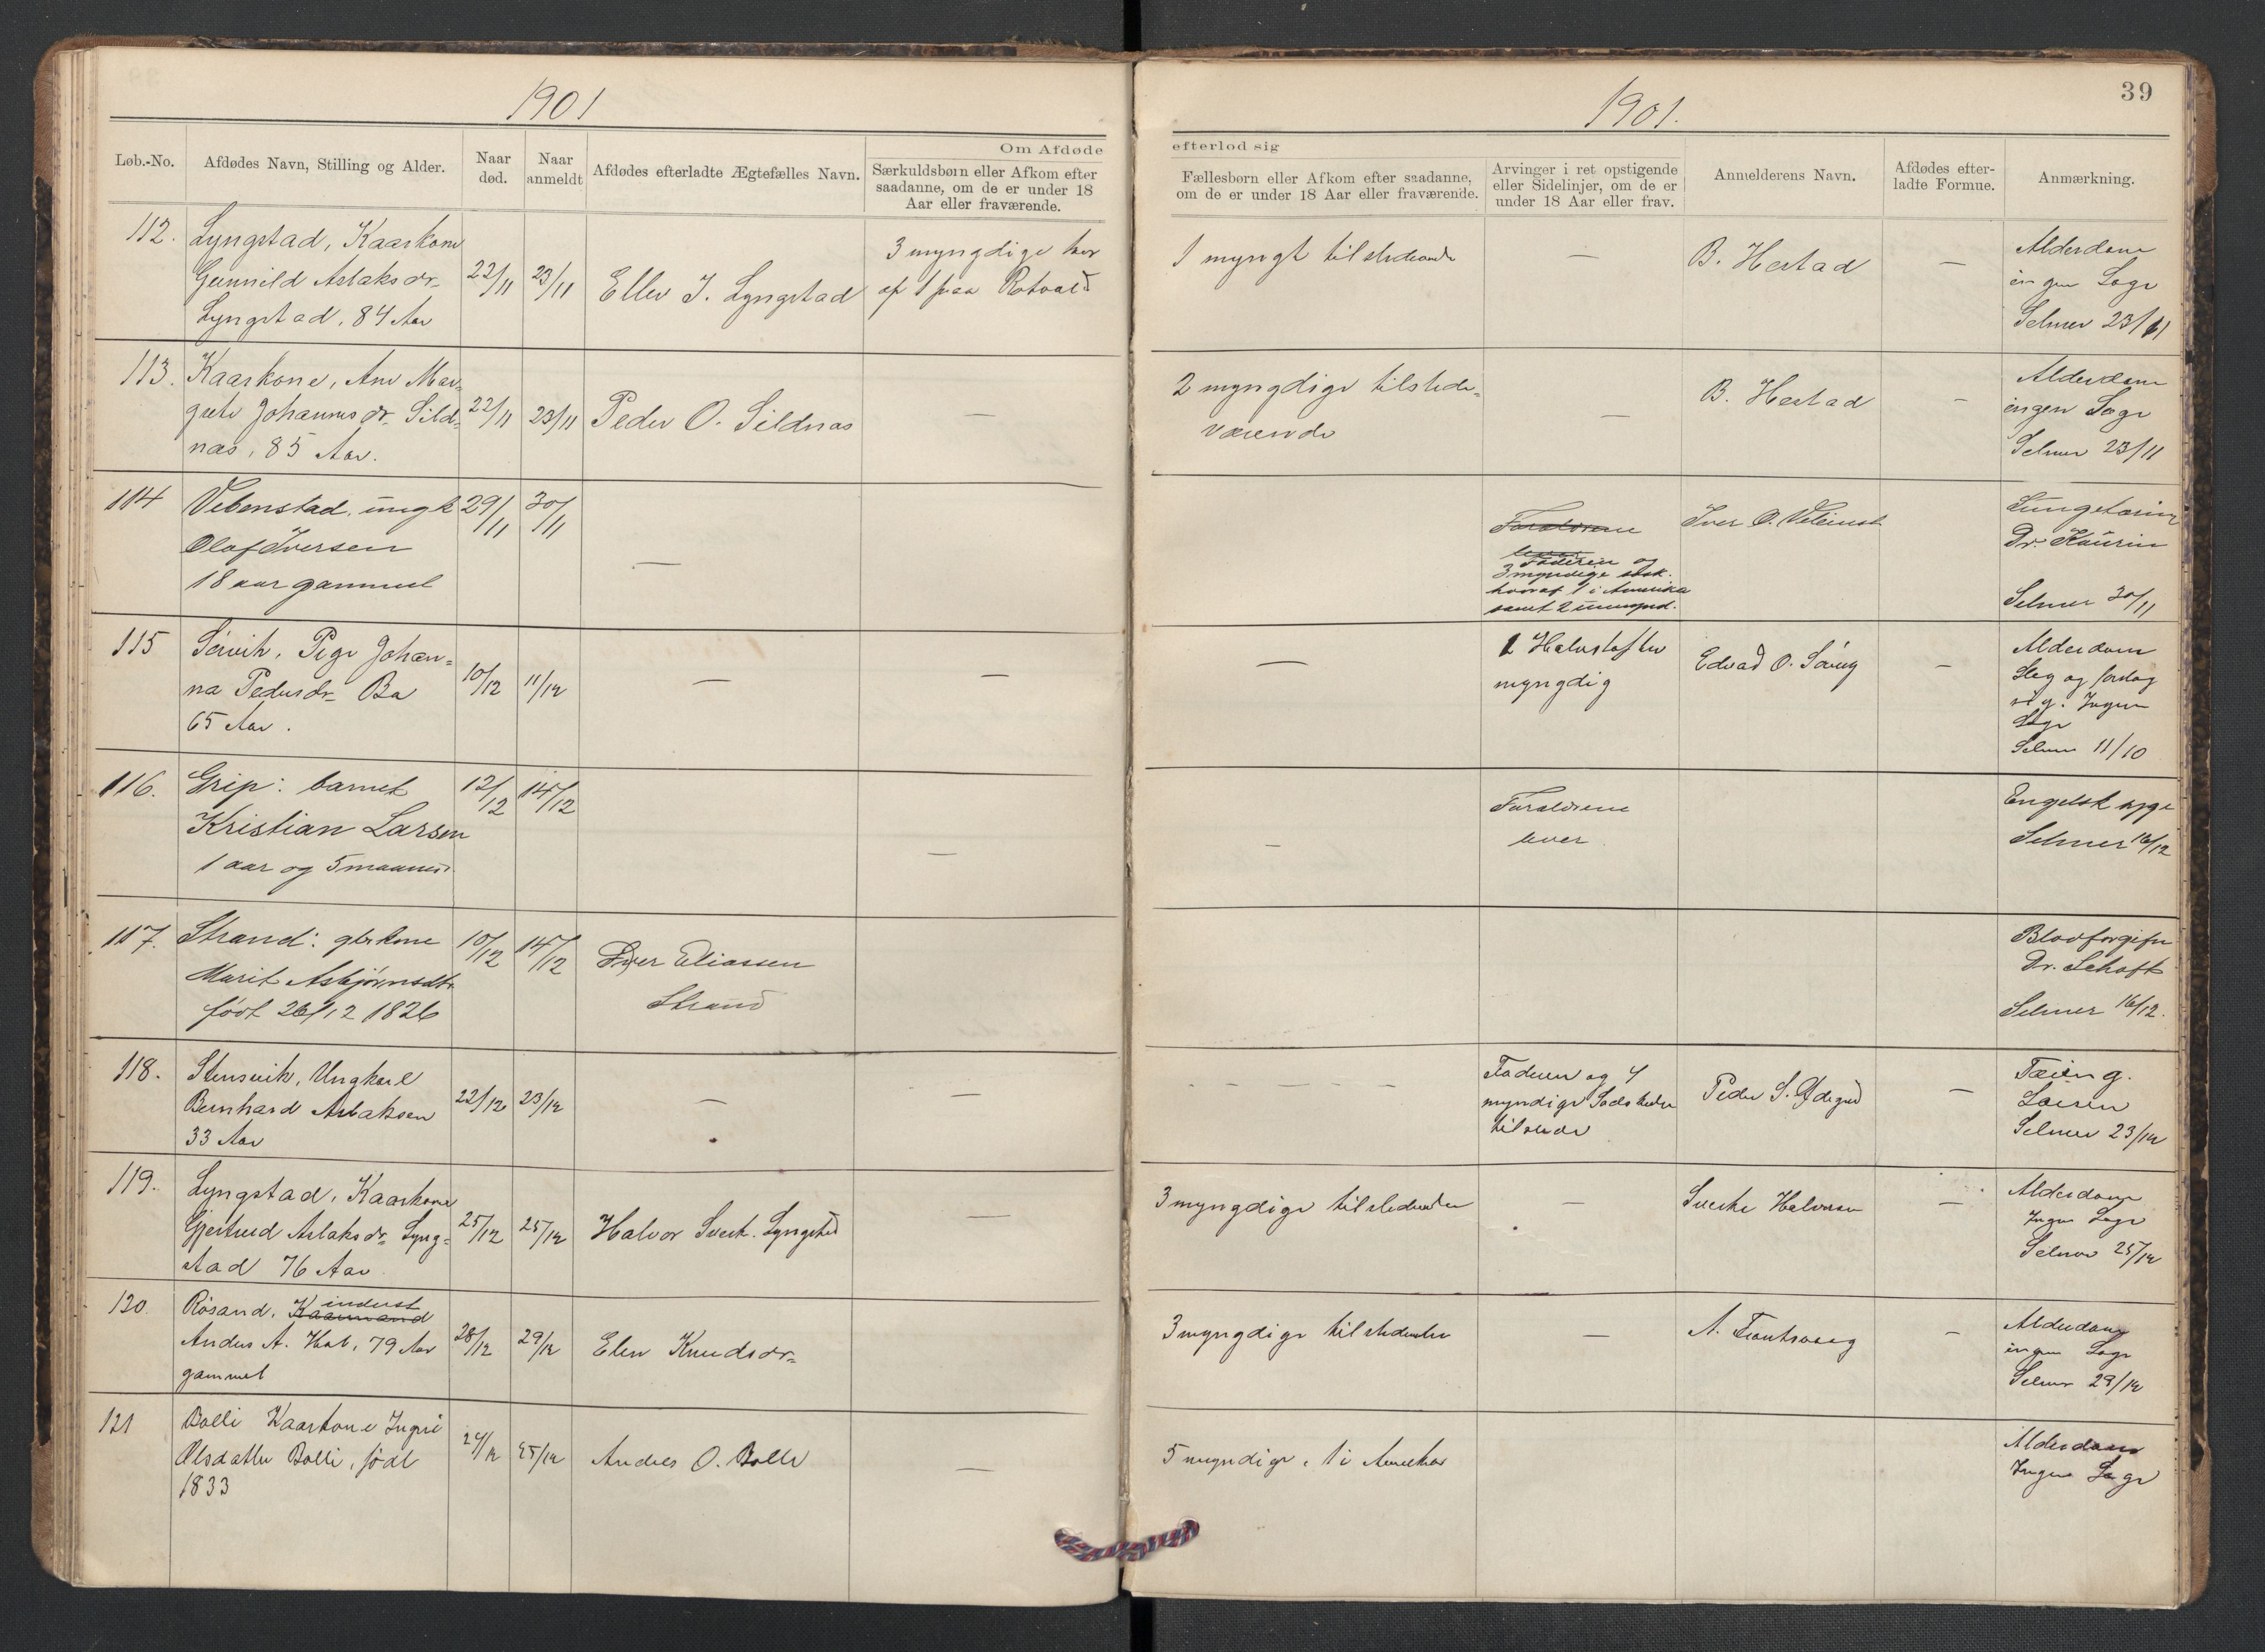 1901
Løb.-No.
Afdødes Navn, Stilling og Alder.
Naar død.
Naar anmeldt
Afdødes efterladte Ægtefælles Navn.
Om Afdøde
Særkuldsbørn eller Afkom efter
saadanne, om de er under 18
Aar eller fraværende.
1901.
39
efterlod sig
Fællesbørn eller Afkom efter saadanne,
om de er under 18 Aar eller fraværende.
Arvinger i ret opstigende
eller Sidelinjer, om de er
under 18 Aar eller frav.
Anmelderens Navn.
Afdødes efter-
ladte Formue.
Anmærkning.
112.
Lyngstad, Kaarkone
Gunnild Aslaksdr
Lyngstad, 84 Aar
22/11
23/11
Ellev J. Lyngstad
3 myngdige hvor
af 1 paa Rotvold
1 myngt
B. Hestad
—
Alderdom
ingen Læge
Selmer 23/11
113.
Kaarkone, Ane Mar-
grete Johannesdr Sild-
næs, 85 Aar.
22/11
23/11
Peder O. Sildnæs
—
2 myngdige tilstede-
værende
—
B. Hestad
-
Alderdom
ingen Læge
Selmer 23/11
114
Vebenstad, ungk
Olaf Iversen
18 aar gammel
29/11
30/11
—
Forældrene
lever
Faderen og
3 myndige søsk.
hvoraf 1 i Amerika
samt 2 umynd.
Iver O.
Dr. Kaurin
Selmer 30/11
115
Sørvik, Pige Johan-
na Pedersdr Bø
65 Aar.
10/12
11/12
—
—
—
1
myngdig
Edvad O.
—
Alderdom
Slag og
Ingen
Læge
Selmer 11/10
116.
Grip: barnet
Kristian Larsen
1 aar og 5 maaned
12/12
14/12
—
-
Forældrene
lever
Engelsk syge
Selmer 16/12
117.
Strand: gbr kone
Marit Asbjørnsdtr
født 26/12 1826
10/12
14/12
Iver Eliassen
Strand
Blodforgifn
Dr. Schøft
Selmer 16/12.
118.
Stensvik, Ungkarl
Bernhard Aslaksen
33 Aar
22/12
23/12
—
—
- - - - -
Faderen og 4
myndige Sødskende
tilstede
Peder S. Ødegrd
—
Tæring.
Selmer 23/12
119.
Lyngstad, Kaarkone
Gjertrud Aslaksdr Lyng-
stad 76 Aar
25/12
25/12
Halvor Sverk. Lyngstad
—
3 myngdige
—
Sverke Halvorsen
—
Alderdom
Ingen Læge
Selmer 25/12
120.
Røsand, Kaarmand
inderst
Anders A. Hol, 79 Aar
gammel
28/12
29/12
Elen Knudsdr
3 myngdige
—
A.
-
Alderdom
ingen Læge
Selmer 29/12
121
Bolli Kaarkone Ingri
Olsdatter Bolli, født
1833
24/12
25/12
Anders O. Bolli
—
5 myndige, 1 i Amerika
Alderdom
Ingen Læge